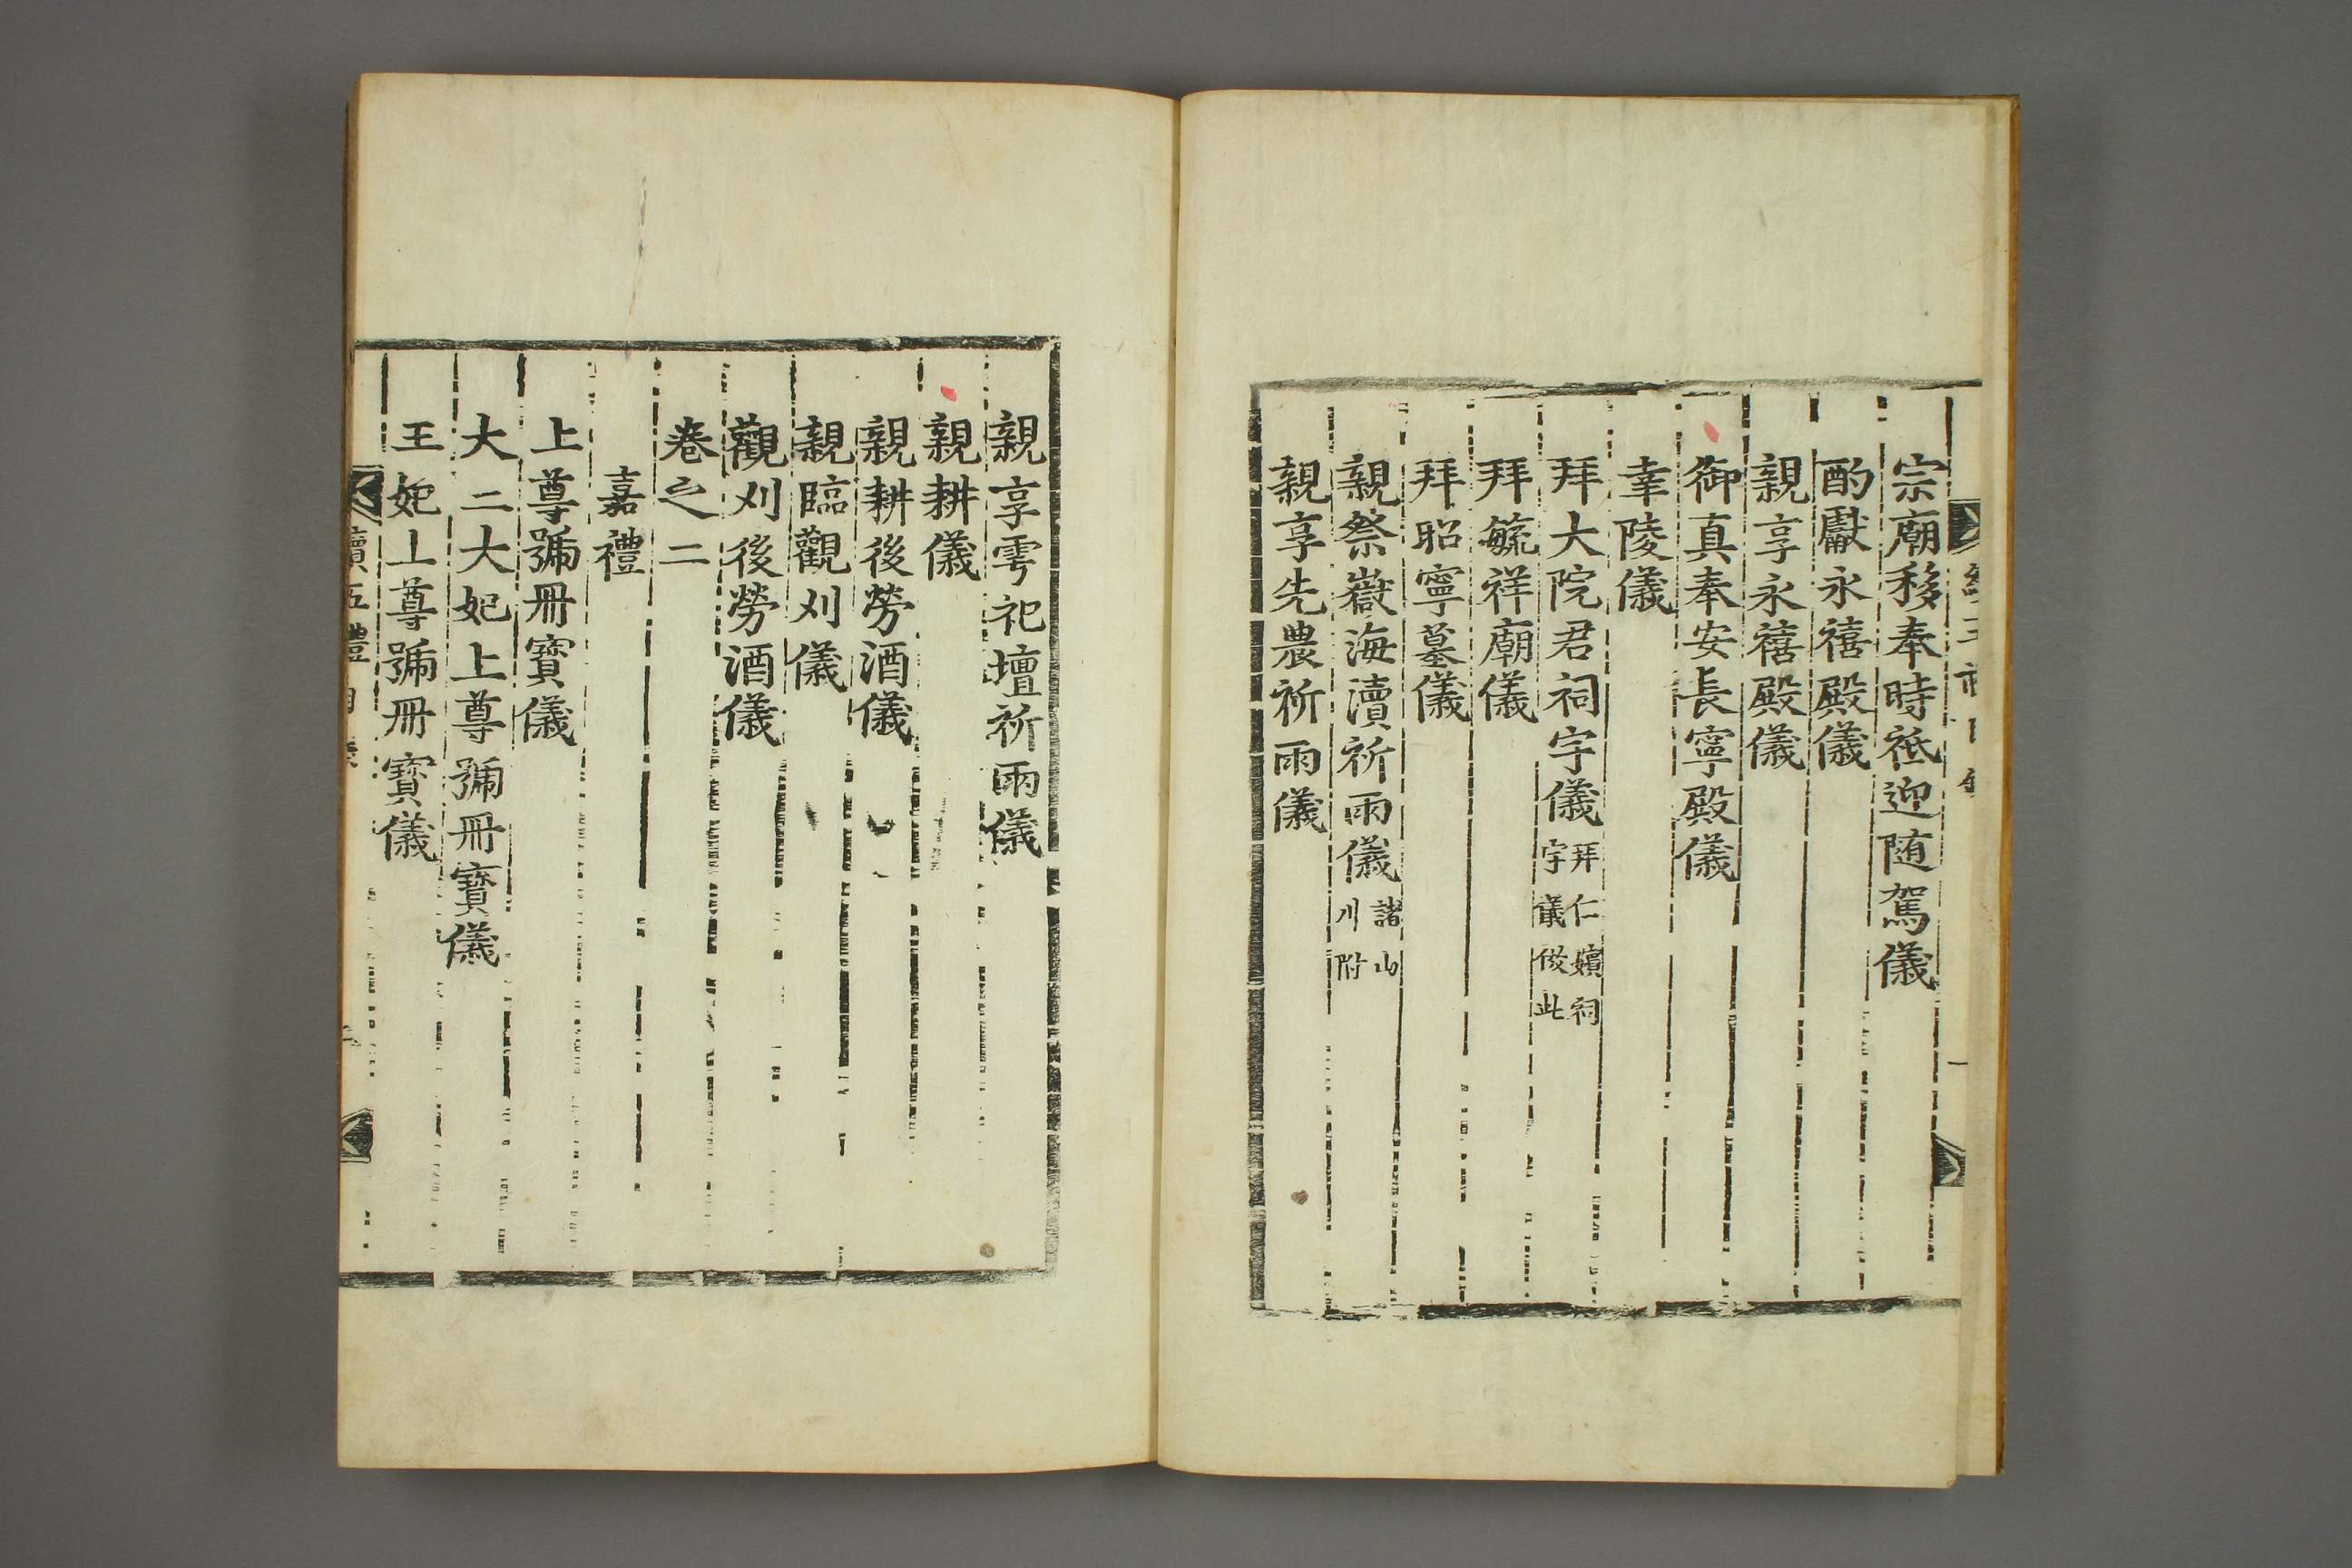 宗廟移奉時祗迎随駕儀
酌獻永禧殿儀
親享永禧殿儀
御真奉安長寧殿儀
幸陵儀
拜大院君祠宇儀拜仁嬪祠宇儀倣此
拜毓祥廟儀
拜昭寧墓儀
親祭嶽海瀆祈雨儀諸山川附
親享先農祈雨儀
親享雩祀壇祈雨儀
親耕儀
親耕後勞酒儀
親臨觀刈儀
觀刈後勞酒儀
卷之二
嘉禮
上尊號冊寶儀
大二大妃上尊號冊寶儀
王妃上尊號冊寶儀
續五禮